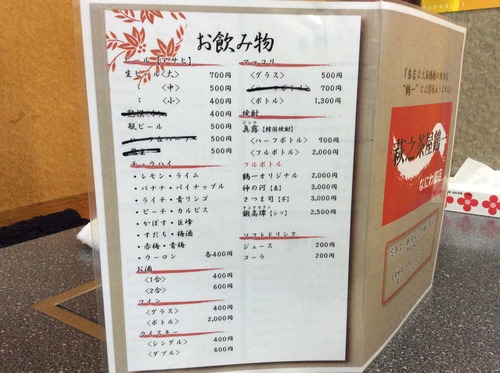 お飲み物
ビール【アサヒ】
生ビール<大> 700円
〃 <中> 500円
〃 <小> 400円
400円
瓶ビール 500円
500円
500円
チュウハイ
・レモン・ライム
・バナナ・パイナップル
・ライチ・青リンゴ
・ピーチ・カルピス
・かぼす・巨峰
・すだち・梅酒
・赤梅・青梅
・ウーロン 各400円
お酒
<1合> 400円
<2合> 600円
ワイン
<グラス> 400円
<ボトル> 2,000円
ウイスキー
<シングル> 400円
<ダブル> 600円
マッコリ
<グラス> 500円
700円
<ボトル> 1,300円
焼酎
真露【韓国焼酎】
<ハーフボトル> 900円
<フルボトル> 2,000円
フルボトル
鶴一オリジナル 2,000円
神の河【麦】 3,000円
さつま司【芋】 3,000円
鍛高譚【シソ】 2,500円
ソフトドリンク
ジュース 200円
コーラ 200円
萩之茶屋鶴一
なにわ良店